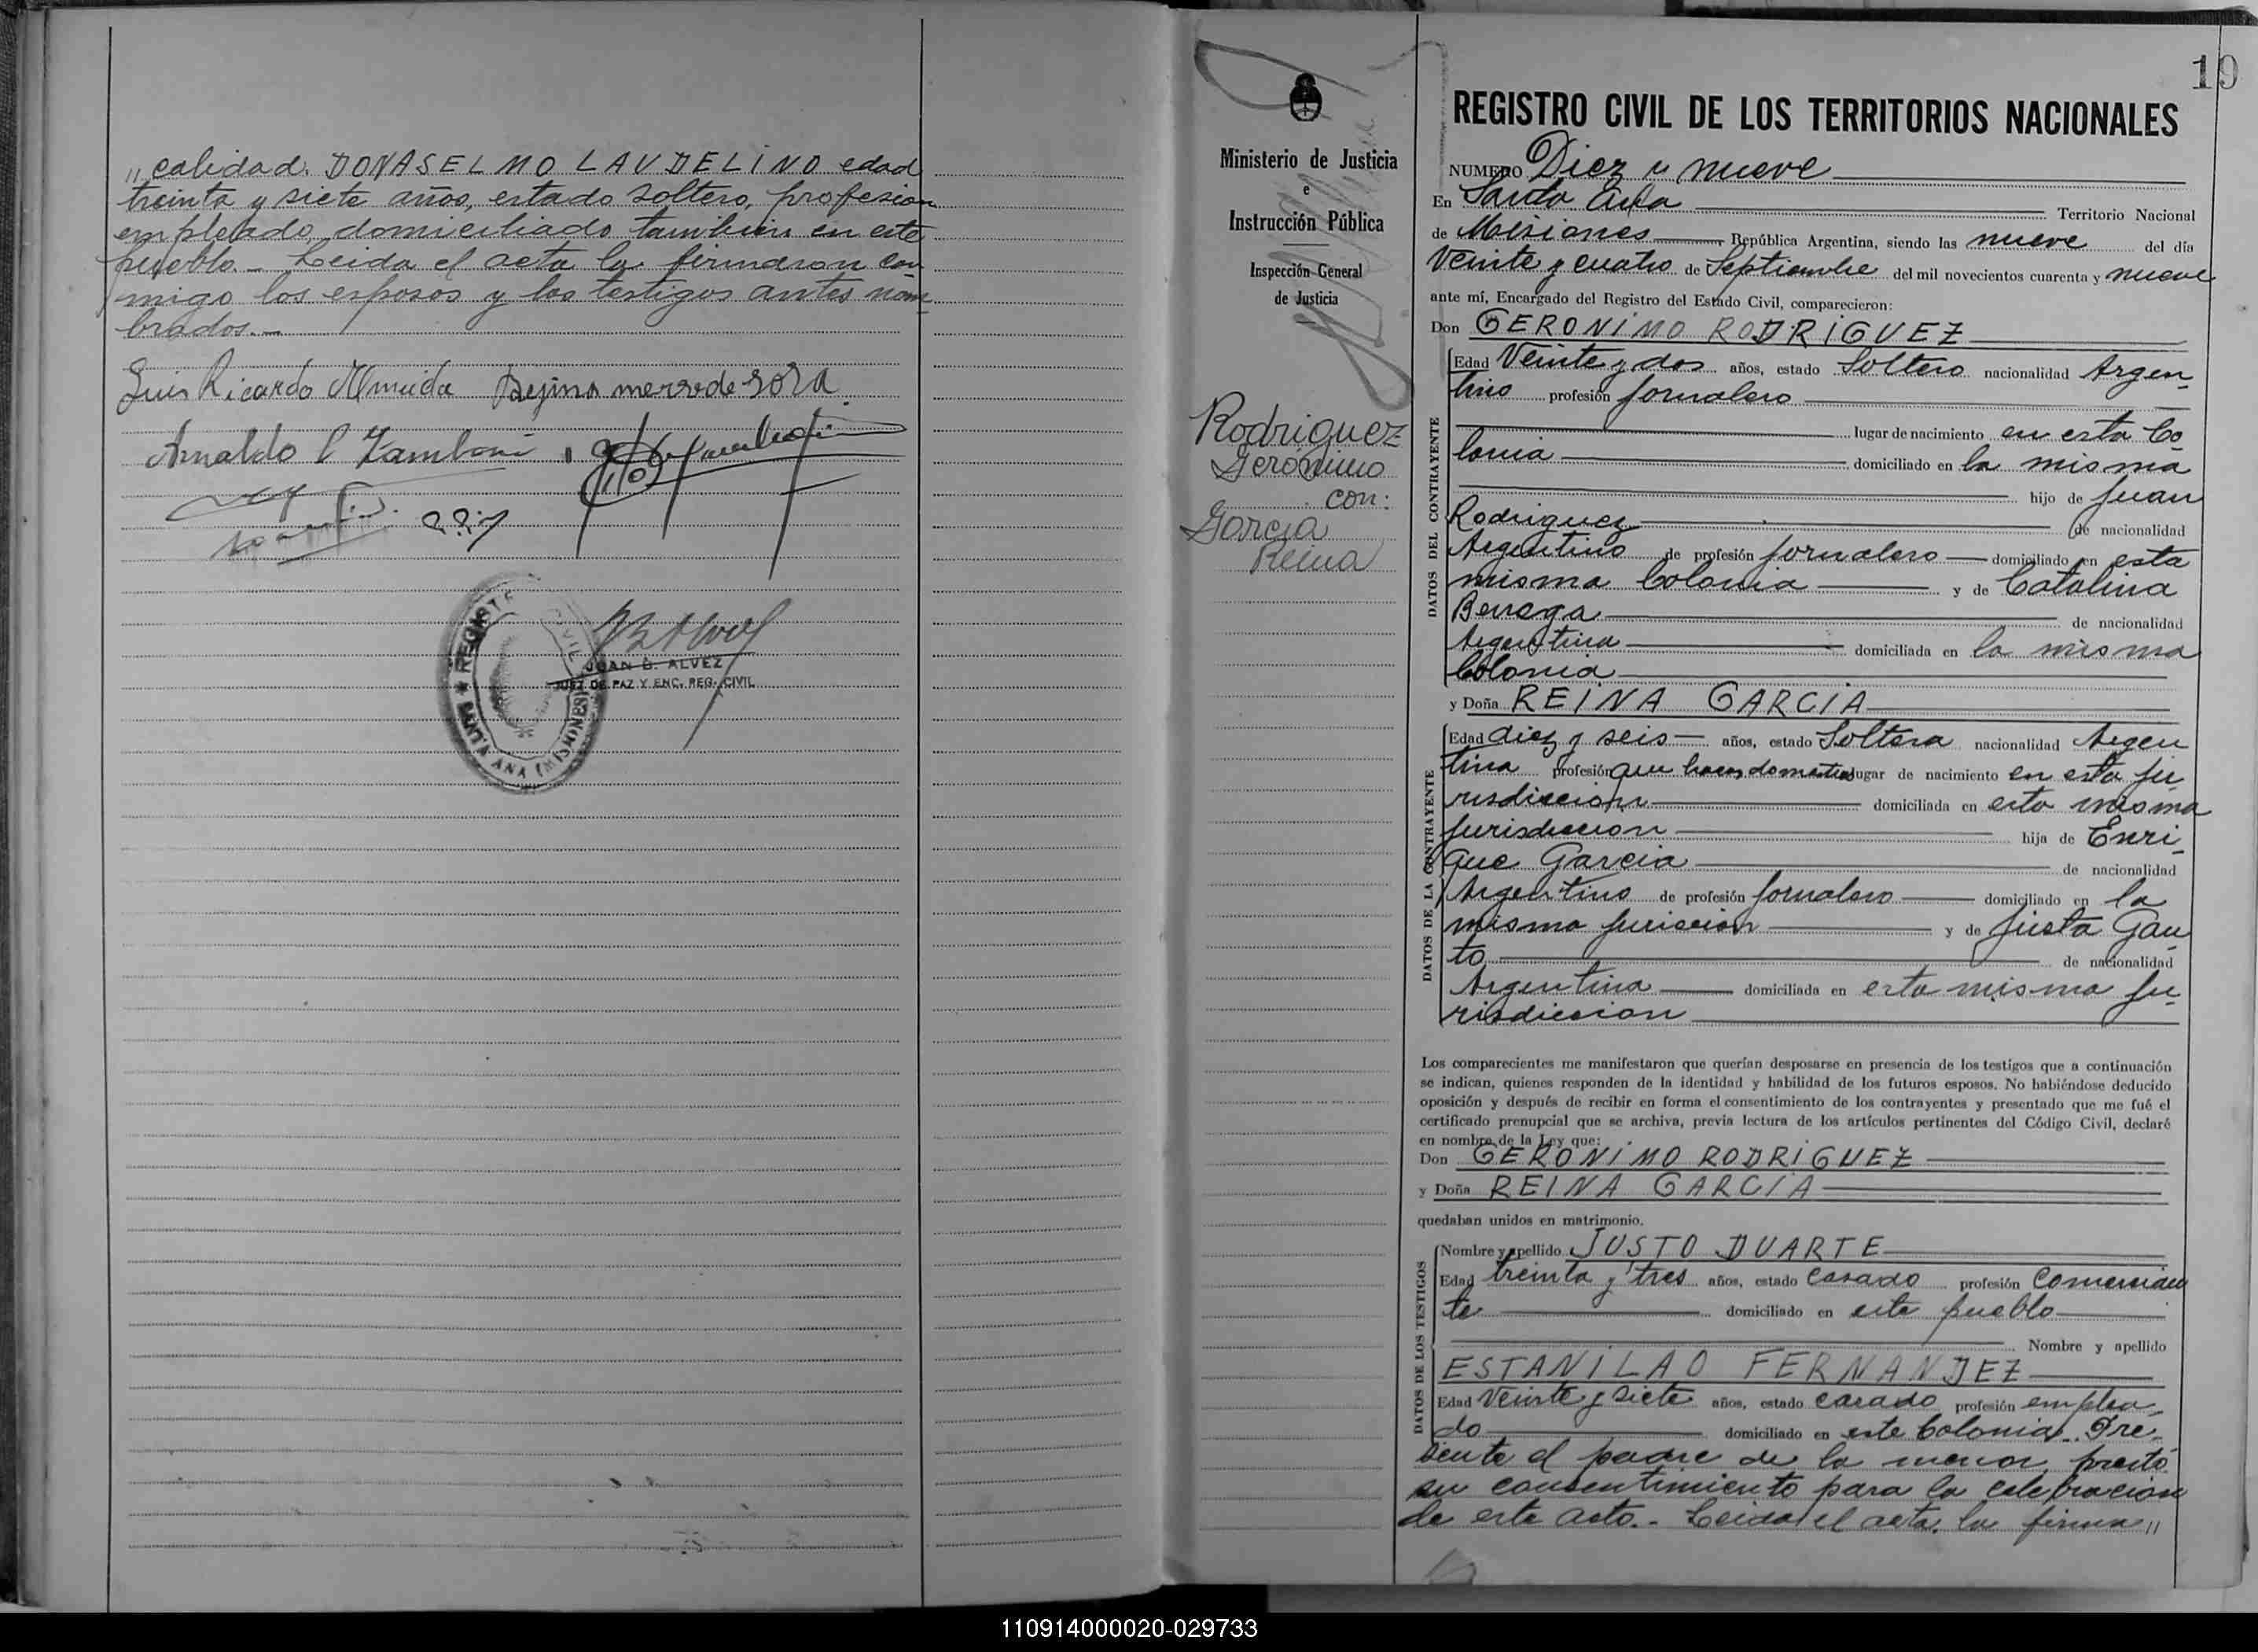 " calidad. DON ASELMO LAUDELINO edad
treinta y siete años, estado soltero, profesion
empleado, domiciliado tambien en este
pueblo.- Leida el acta la firmaron con
migo los esposos y los testigos antes nom
brados.-
Luis Ricardo Almeida Rejina mersede sosa
Arnaldo
REGISTRO CIVIL
★ SANTA ANA (MISIONES)
JUAN B. ALVEZ
JUEZ DE PAZ Y ENC. REG. CIVIL
Ministerio de Justicia
e
Instrucción Pública
Inspección General
de Justicia
Rodriguez
Gerónimo
con:
Garcia
Reina
19
REGISTRO CIVIL DE LOS TERRITORIOS NACIONALES
NUMERO Diez y nueve
En Santa Ana Territorio Nacional
de Misiones República Argentina, siendo las nueve del día
Veinte y cuatro de Septiembre del mil novecientos cuarenta y nueve
ante mí, Encargado del Registro del Estado Civil, comparecieron:
Don GERONIMO RODRIGUEZ
DATOS DEL CONTRAYENTE
Edad Veinte y dos años, estado Soltero nacionalidad Argen-
tino profesión Jornalero
lugar de nacimiento en esta Co
lonia domiciliado en la misma
hijo de Juan
Rodriguez de nacionalidad
Argentino de profesión Jornalero domiciliado en esta
misma Colonia y de Catalina
de nacionalidad
Argentina domiciliada en la misma
Colonia
y Doña REINA GARCIA
DATOS DE LA CONTRAYENTE
Edad diez y seis años, estado Soltera nacionalidad Argen
tina profesión que haceres domesticos lugar de nacimiento en esta ju
risdiccion domiciliada en esta misma
Jurisdiccion hija de Enri-
que Garcia de nacionalidad
Argentino de profesión Jornalero domiciliado en la
misma y de Justa Gau
to de nacionalidad
Argentina domiciliada en esta misma Ju-
risdiccion
Los comparecientes me manifestaron que querían desposarse en presencia de los testigos que a continuación
se indican, quienes responden de la identidad y habilidad de los futuros esposos. No habiéndose deducido
oposición y después de recibir en forma el consentimiento de los contrayentes y presentado que me fué el
certificado prenupcial que se archiva, previa lectura de los artículos pertinentes del Código Civil, declaré
en nombre de la Ley que:
Don GERONIMO RODRIGUEZ
y Doña REINA GARCIA
quedaban unidos en matrimonio.
DATOS DE LOS TESTIGOS
Nombre y apellido JUSTO DUARTE
Edad treinta y tres años, estado Casado profesión Comercian
te domiciliado en este pueblo
Nombre y apellido
ESTANILAO FERNANDEZ
Edad Veinte y siete años, estado casado profesión emplea-
do domiciliado en este Colonia.- Pre-
sente el padre de la menor, prestó
su consentimiento para la celebracion
de este acto.- Leida el acta, la firma "
110914000020-029733